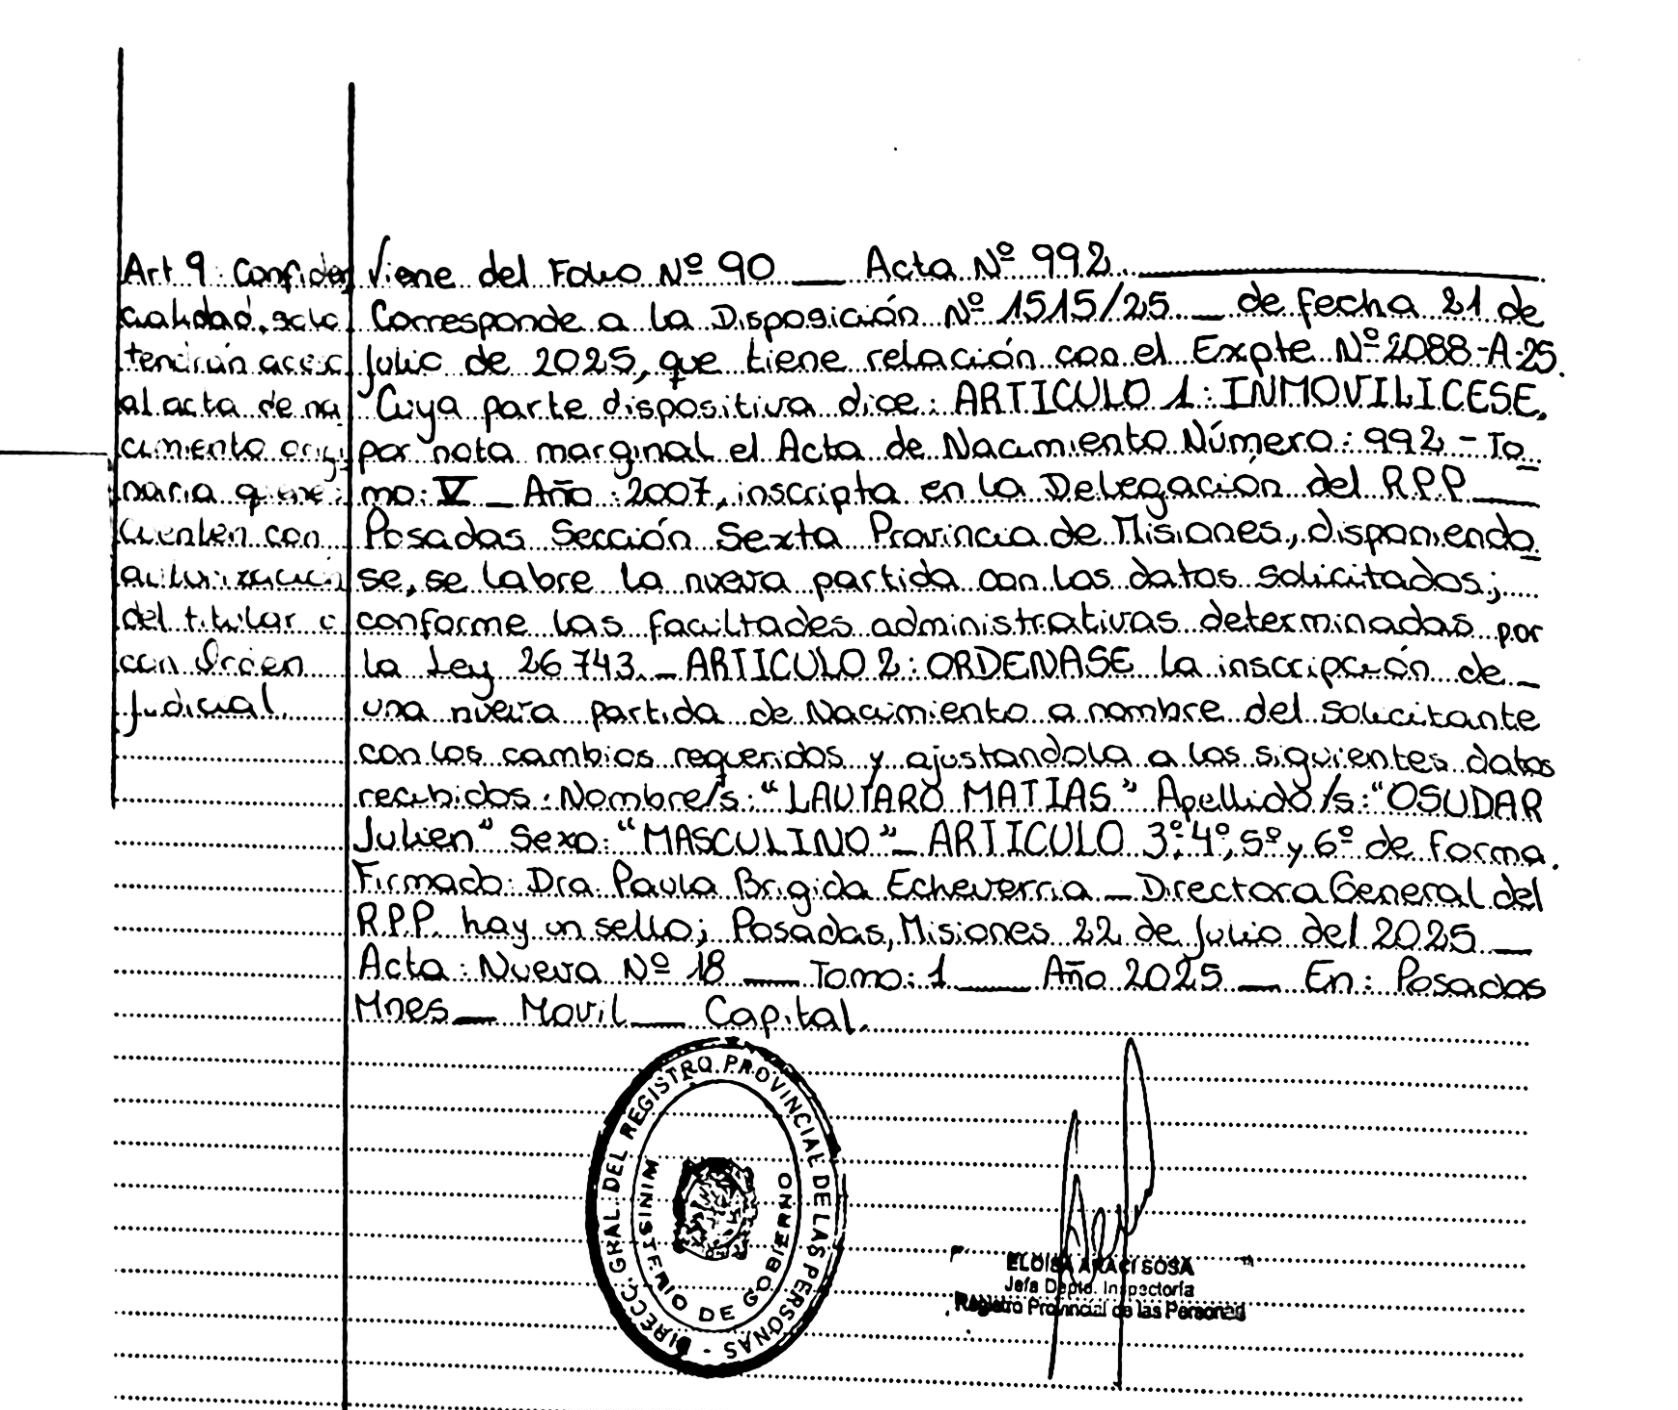 Art 9: Confiden
cialidad, solo
tendrán acces
al acta de na
cimiento origi
naria quienes
cuenten con
autorización
del titular o
con Orden
Judicial.
Viene del Folio Nº 90 __ Acta Nº 992.
Corresponde a la Disposición Nº 1515/25 __ de fecha 21 de
Julio de 2025, que tiene relación con el Expte Nº 2088-A-25.
Cuya parte dispositiva dice: ARTICULO 1: INMOVILICESE,
por nota marginal el Acta de Nacimiento Número: 992 - To_
mo: V _ Año: 2007, inscripta en la Delegación del R.P.P __
Posadas Sección Sexta Provincia de Misiones, disponiendo_
se, se labre la nueva partida con los datos solicitados;
conforme las facultades administrativas determinadas por
la Ley 26743._ ARTICULO 2: ORDENASE la inscripción de _
una nueva partida de Nacimiento a nombre del solicitante
con los cambios requeridos y ajustandola a los siguientes datos
recibidos: Nombre/s: "LAUTARO MATIAS" Apellido/s: "OSUDAR
Julien" Sexo: "MASCULINO" _ ARTICULO 3º, 4º, 5º y 6º de forma.
Firmado: Dra. Paula Brigida Echeverria _ Directora General del
R.P.P. hay un sello; Posadas, Misiones 22 de Julio del 2025 __
Acta: Nueva Nº 18 __ Tomo: 1 __ Año 2025 __ En: Posadas
Mnes __ Movil __ Capital.
DIRECC. GRAL. DEL REGISTRO PROVINCIAL DE LAS PERSONAS -
MINISTERIO DE GOBIERNO
ELOISA ARACI SOSA
Jefa Depto. Inspectoría
Registro Provincial de las Personas